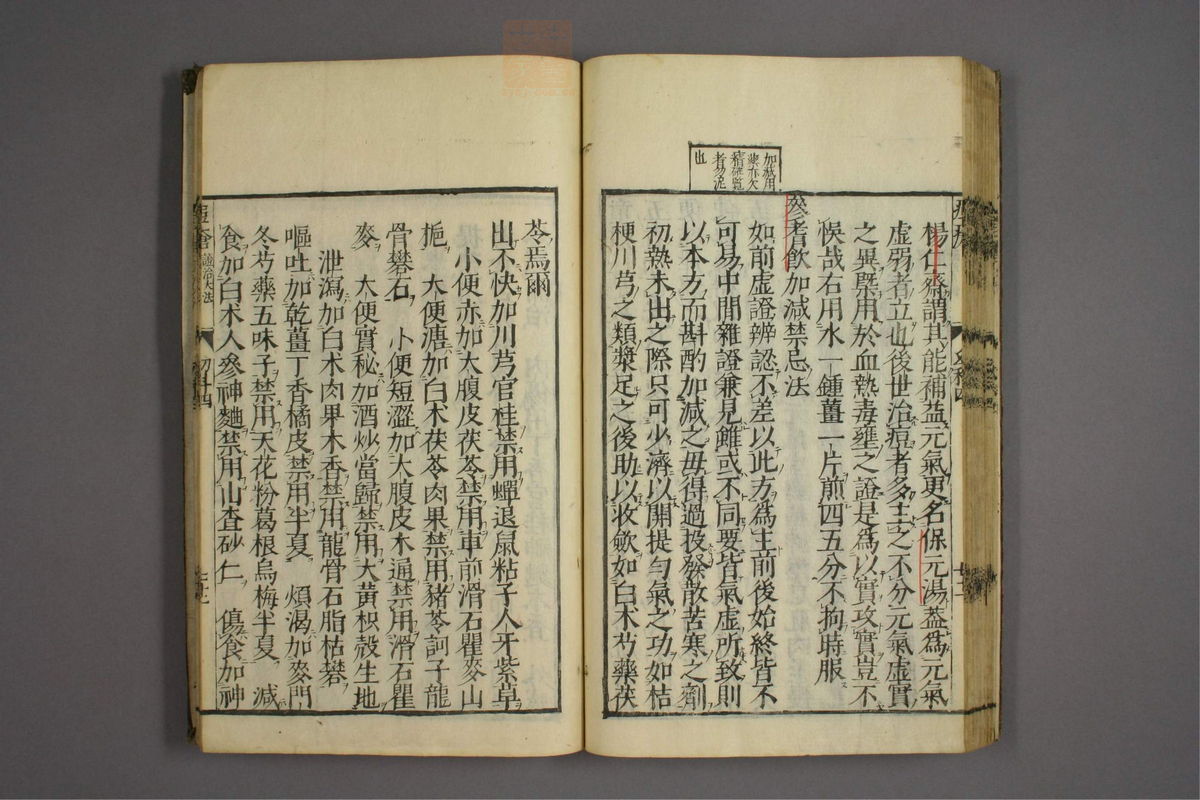 加減用
藥亦欠
精確覧
者勿泥
也
楊仁齋謂其能補益元氣更名保元湯葢爲元氣
虚弱者立也後世治痘者多主之不分元氣虚實
之異既用於血熱毒壅之證是爲以實攻實豈不
悞哉右用水一鍾薑一片煎四五分不拘時服
參耆飲加減禁忌法
如前虚證辨認不差以此方爲主前後始終皆不
可易中間雜證兼見雖或不同要皆氣虚所致則
以本方而斟酌加減之毋得過投發散苦寒之劑
初熱未出之際只可少濟以開提勻氣之功如桔
梗川芎之類漿足之後助以收斂如白朮芍藥茯
苓焉爾
出不快加川芎官桂禁用蟬退鼠粘子人牙紫草
小便赤加大腹皮茯苓禁用車前滑石瞿麥山
梔 大便溏加白朮茯苓肉果禁用豬苓訶子龍
骨礬石 小便短澀加大腹皮木通禁用滑石瞿
麥 大便實秘加酒炒當歸禁用大黃枳殻生地
泄瀉加白朮肉果木香禁用龍骨石脂枯礬
嘔吐加乾薑丁香橘皮禁用半夏 煩渴加麥門
冬芍藥五味子禁用天花粉葛根烏梅半夏 減
食加白朮人參神麯禁用山査砂仁 傷食加神